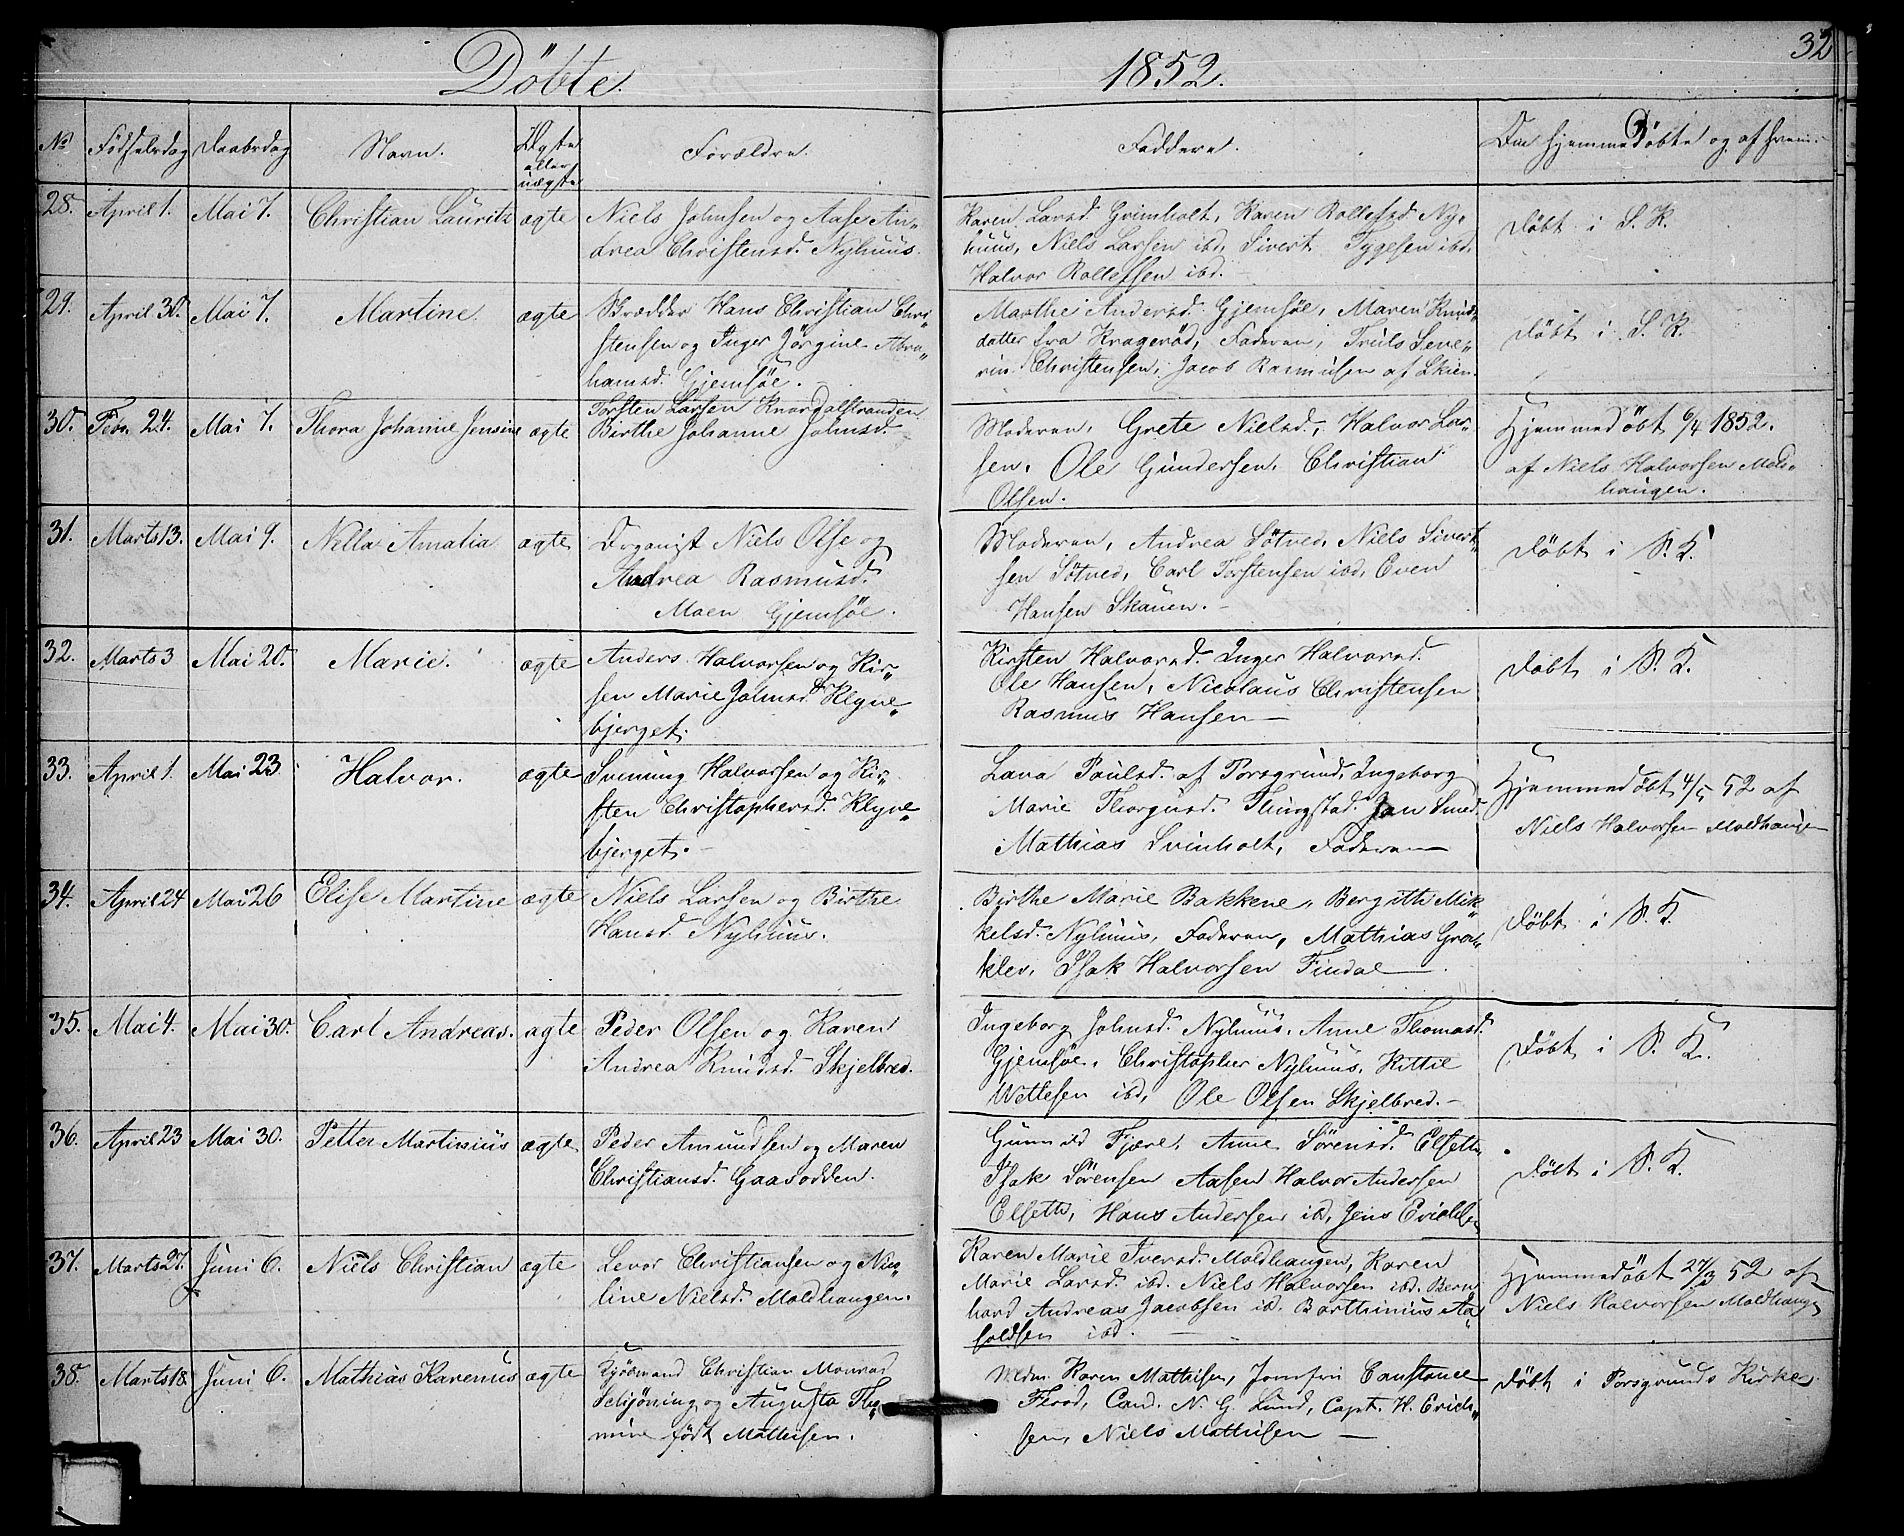 Döbte.
1852.
32
No
Födselsdag
Daabsdag
Navn.
Ægte
eller
uægte
Forældre.
Faddere.
Om hjemmedöbte og af hvem.
28. April 1. Mai 7. Christian Lauritz ægte
Niels Johnsen og Aase An-
drea Christensd. Nyhuus.
Karen Larsd. Grimholt, Karen Rollefsd. Ny-
huus, Niels Larsen ibd, Sivert Tygesen ibd.
Halvor Rollefsen ibd.
Döbt i S. K.
29. April 30. Mai 7. Martine. ægte
Skrædder Hans Christian Chri-
stensen og Inger Jörgine Abra-
hamsd. Gjemsöe.
Marthe Andersd. Gjemsöe, Maren Knud-
datter fra Kragerö, Faderen, Truls Seve-
rin Christensen, Jacob Rasmusen af Skien
Döbt i S. K.
30. Febr. 24. Mai 7. Thora Johanne Jensine ægte
Torsten Larsen Knardalstranden
Birthe Johanne Johnsd.
Moderen, Grete Nielsd., Halvor Lar-
sen, Ole Gundersen, Christian
Olsen.
Hjemmedöbt 6/4 1852.
af Niels Halvorsen Mold-
haugen.
31. Marts 13. Mai 9. Nilla Amalia ægte
Organist Niels Olse og
Andrea Rasmusd.
Moen Gjemsöe.
Moderen, Andrea Sötved, Niels Sivert-
sen Sötved, Carl Torstensen ibd, Even
Hansen Skauen.
Döbt i S. K.
32. Marts 3 Mai 20. Marie. ægte
Anders Halvorsen og Kir-
sten Marie Johnsd. Klyve-
bjerget.
Kirsten Halvorsd. Inger Halvorsd.
Ole Hansen, Nicolaus Christensen
Rasmus Hansen
Döbt i S. K.
33. April 1. Mai 23 Halvor. ægte
Svenung Halvorsen og Kir-
sten Christophersd. Klyve-
bjerget.
Lava Poulsd. af Porsgrund, Ingeborg
Marie Thorgusd. Thingstad. Jan Smed.
Mathias Svinholt, Faderen
Hjemmedöbt 4/5 52 af
Niels Halvorsen Moldhaugen
34. April 24 Mai 26 Elise Martine ægte
Niels Larsen og Birthe
Hansd. Nyhuus.
Birthe Marie Bakkene, Bergitte Mik-
kelsd. Nyhuus, Faderen, Mathias Graa-
klev, Isak Halvorsen Findal
Döbt i S. K.
35. Mai 4. Mai 30. Carl Andreas. ægte
Peder Olsen og Karen
Andrea Knudsd. Skjelbred.
Ingeborg Johnsd. Nyhuus, Anne Thomasd.
Gjemsöe, Christopher Nyhuus, Kittil
Wetlesen ibd, Ole Olsen Skjelbred.
Döbt i S. K.
36. April 23 Mai 30. Petter Martinius ægte
Peder Amundsen og Maren
Christiansd. Gaasodden.
Gunnild Fjære, Anne Sörensd. Elsett,
Isak Sörensen Aasen Halvor Andersen
Elsett, Hans Andersen ibd, Jens Ericksen
Döbt i S. K.
37. Marts 27. Juni 6. Niels Christian ægte
Levor Christiansen og Nico-
line Nielsd. Moldhaugen.
Karen Marie Iversd. Moldhaugen, Karen
Marie Larsd. ibd. Niels Halvorsen ibd. Bern
hard Andreas Jacobsen ibd. Barthinius Aa-
soldsen ibd.
Hjemmedöbt 27/3 52 af
Niels Halvorsen Moldhaug
38. Marts 18. Juni 6. Mathias Karenus ægte
Kjöbmand Christian Monrad
Schjöning og Augusta Tho-
mine födt Mathisen.
Mdm. Karen Mathisen, Jomfru Constance
Flood, Cand. N. G. Lund, Capt. H. Erich-
sen, Niels Mathisen
Döbt i Porsgrunds Kirke.